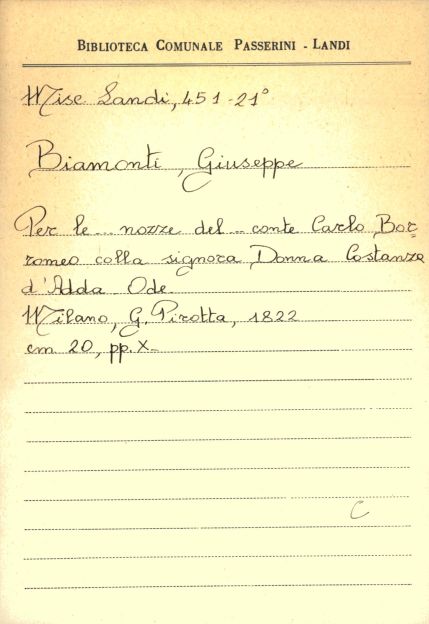 BIBLIOTECA COMUNALE PASSERINI - LANDI
Misc. Landi, 451-21°
Biamonti, Giuseppe
Per le ... nozze del ... conte Carlo Bor=
romeo colla signora Donna Costanza
d'Adda Ode.
Milano, G. Pirotta, 1822
cm 20, pp. X
C